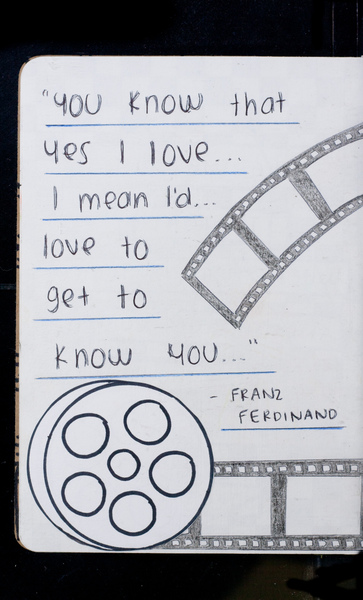 "YOU know that
yes I love...
I mean I'd...
love to
get to
know you..."
- FRANZ
FERDINAND